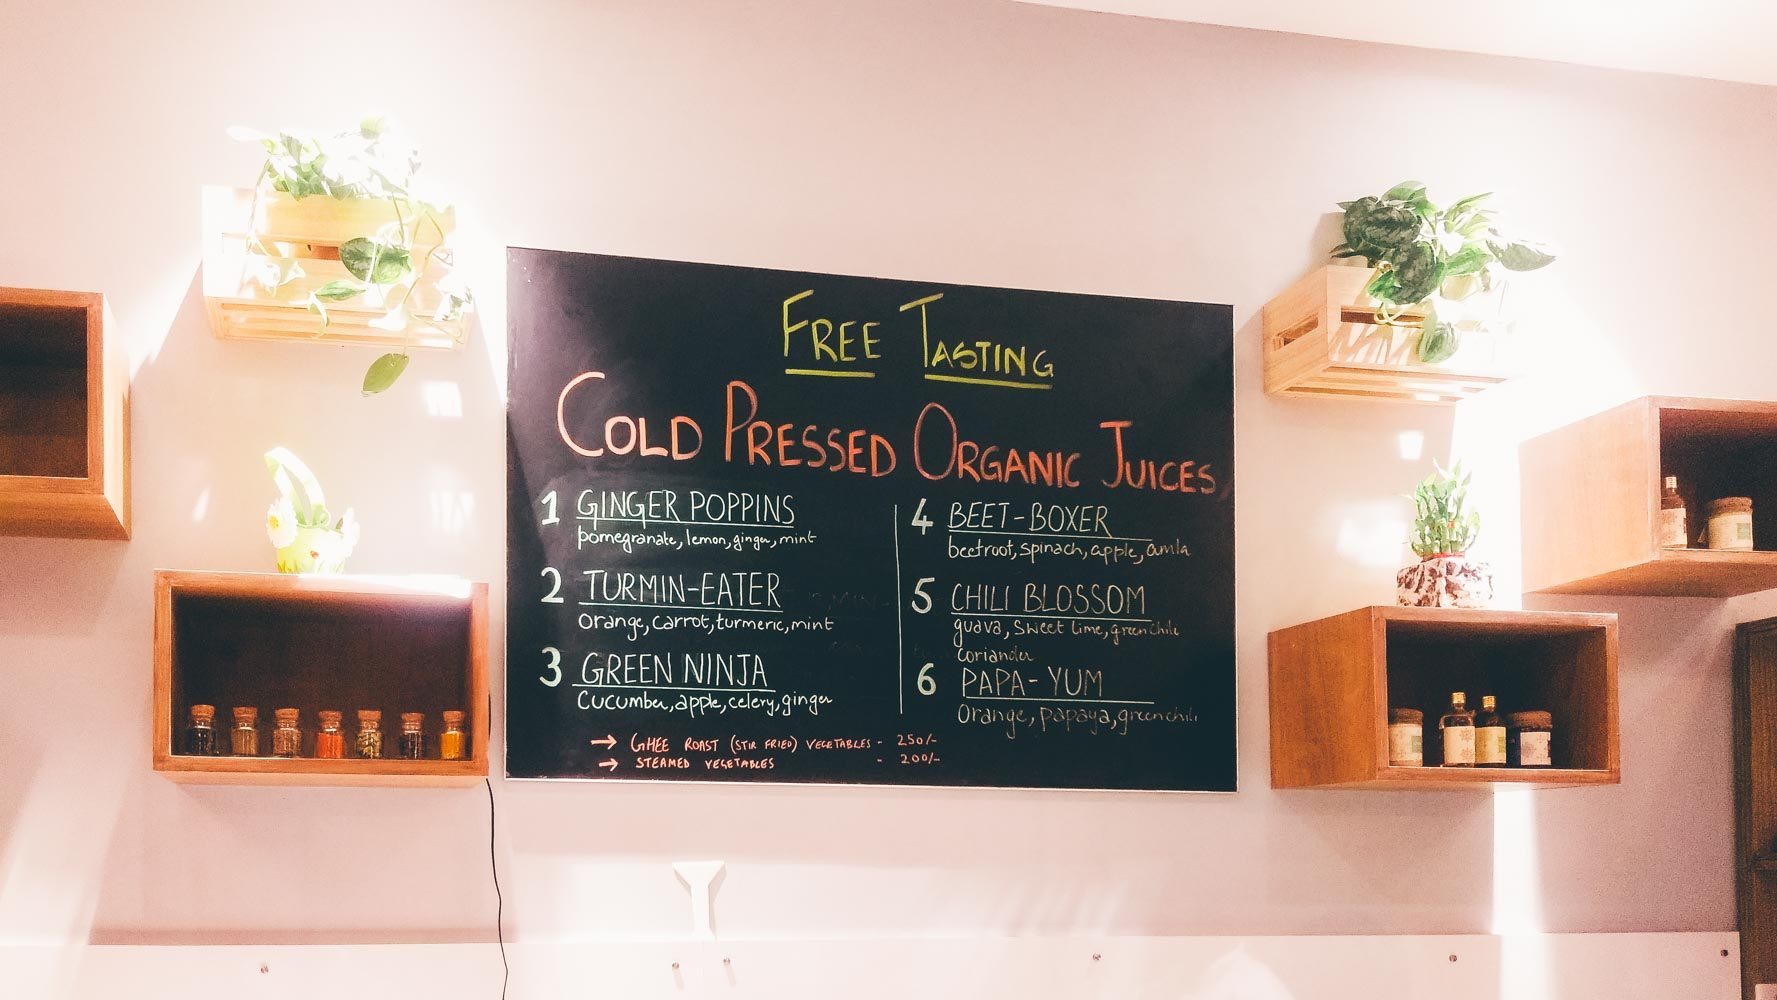 FREE TASTING
COLD PRESSED ORGANIC JUICES
1 GINGER POPPINS
pomegranate, lemon, ginger, mint
2 TURMIN-EATER
Orange, Carrot, turmeric, mint
3 GREEN NINJA
Cucumber, apple, celery, ginger
4 BEET-BOXER
beetroot, spinach, apple, amla
5 CHILI BLOSSOM
guava, Sweet lime, green chili
coriander
6 PAPA-YUM
Orange, papaya, green chili
→ GHEE ROAST (STIR FRIED) VEGETABLES - 250/-
→ STEAMED VEGETABLES - 200/-